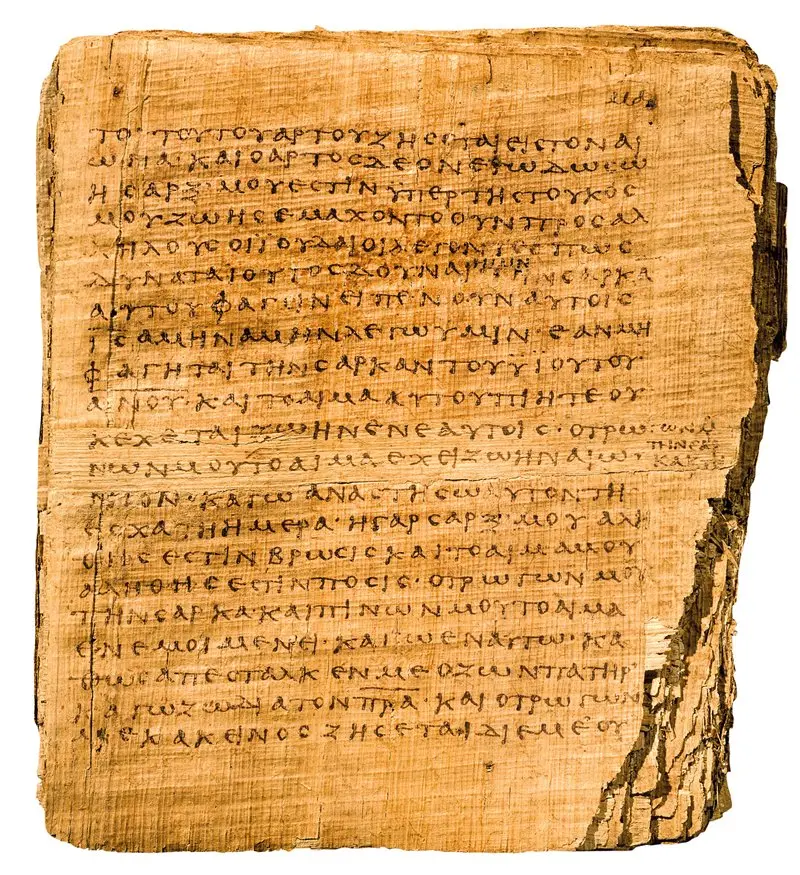 ΜΔ
ΤΟ· ΤΟΥΤΟΥΑΡΤΟΥΖΗϹΕΤΑΙΕΙϹΤΟΝΑΙ
ΩΝΑ· ΚΑΙΟΑΡΤΟϹΔΕΟΝΕΓΩΔΩϹΩ
ΗϹΑΡΞ· ΜΟΥΕϹΤΙΝΫΠΕΡΤΗϹΤΟΥΚΟϹ
ΜΟΥΖΩΗϹΕΜΑΧΟΝΤΟΟΥΝΠΡΟϹΑΛ
ΛΗΛΟΥϹΟΙΪΟΥΔΑΙΟΙΛΕΓΟΝΤΕϹΠΩϹ
ΔΥΝΑΤΑΙΟΥΤΟϹΔΟΥΝΑΙΗΜΙΝΤΗΝϹΑΡΚΑ
ΑΥΤΟΥΦΑΓΕΙΝΕΙΠΕΝΟΥΝΑΥΤΟΙϹ
ΙϹΑΜΗΝΑΜΗΝΛΕΓΩΫΜΙΝ· ΕΑΝΜΗ
ΦΑΓΗΤΑΙΤΗΝϹΑΡΚΑΝΤΟΥΫΙΟΥΤΟΥ·
ΑΝΟΥ· ΚΑΙΤΟΑΙΜΑΑΥΤΟΥΠΙΗΤΕΟΥ
ΧΕΧΕΤΑΙΖΩΗΝΕΝΕΑΥΤΟΙϹ· ΟΤΡΩ
ΝΩΝΜΟΥΤΟΑΙΜΑΕΧΕΙΖΩΗΝΑΙΩ
ΝΙΟΝ· ΚΑΓΩΑΝΑϹΤΗϹΩΑΥΤΟΝΤΗ
ΕϹΧΑΤΗΗΜΕΡΑ· ΗΓΑΡϹΑΡΞ· ΜΟΥΑΛΗ
ΘΗϹΕϹΤΙΝΒΡΩϹΙϹΚΑΙ· ΤΟΑΙΜΑΜΟΥ
ΑΛΗΘΗϹΕϹΤΙΝΠΟϹΙϹ· ΟΤΡΩΓΩΝΜΟΥ
ΤΗΝϹΑΡΚΑ· ΚΑΙΠΙΝΩΝΜΟΥΤΟΑΙΜΑ
ΕΝΕΜΟΙΜΕΝΕΙ· ΚΑΓΩΕΝΑΥΤΩ· ΚΑ
ΘΩϹΑΠΕϹΤΑΛΚΕΝΜΕΟΖΩΝΠΑΤΗΡ
ΚΑΓΩΖΩΔΙΑΤΟΝΠΡΑ· ΚΑΙΟΤΡΩΓΩΝ
ΜΕΚΑΚΕΙΝΟϹΖΗϹΕΤΑΙΔΙΕΜΕΟΥ